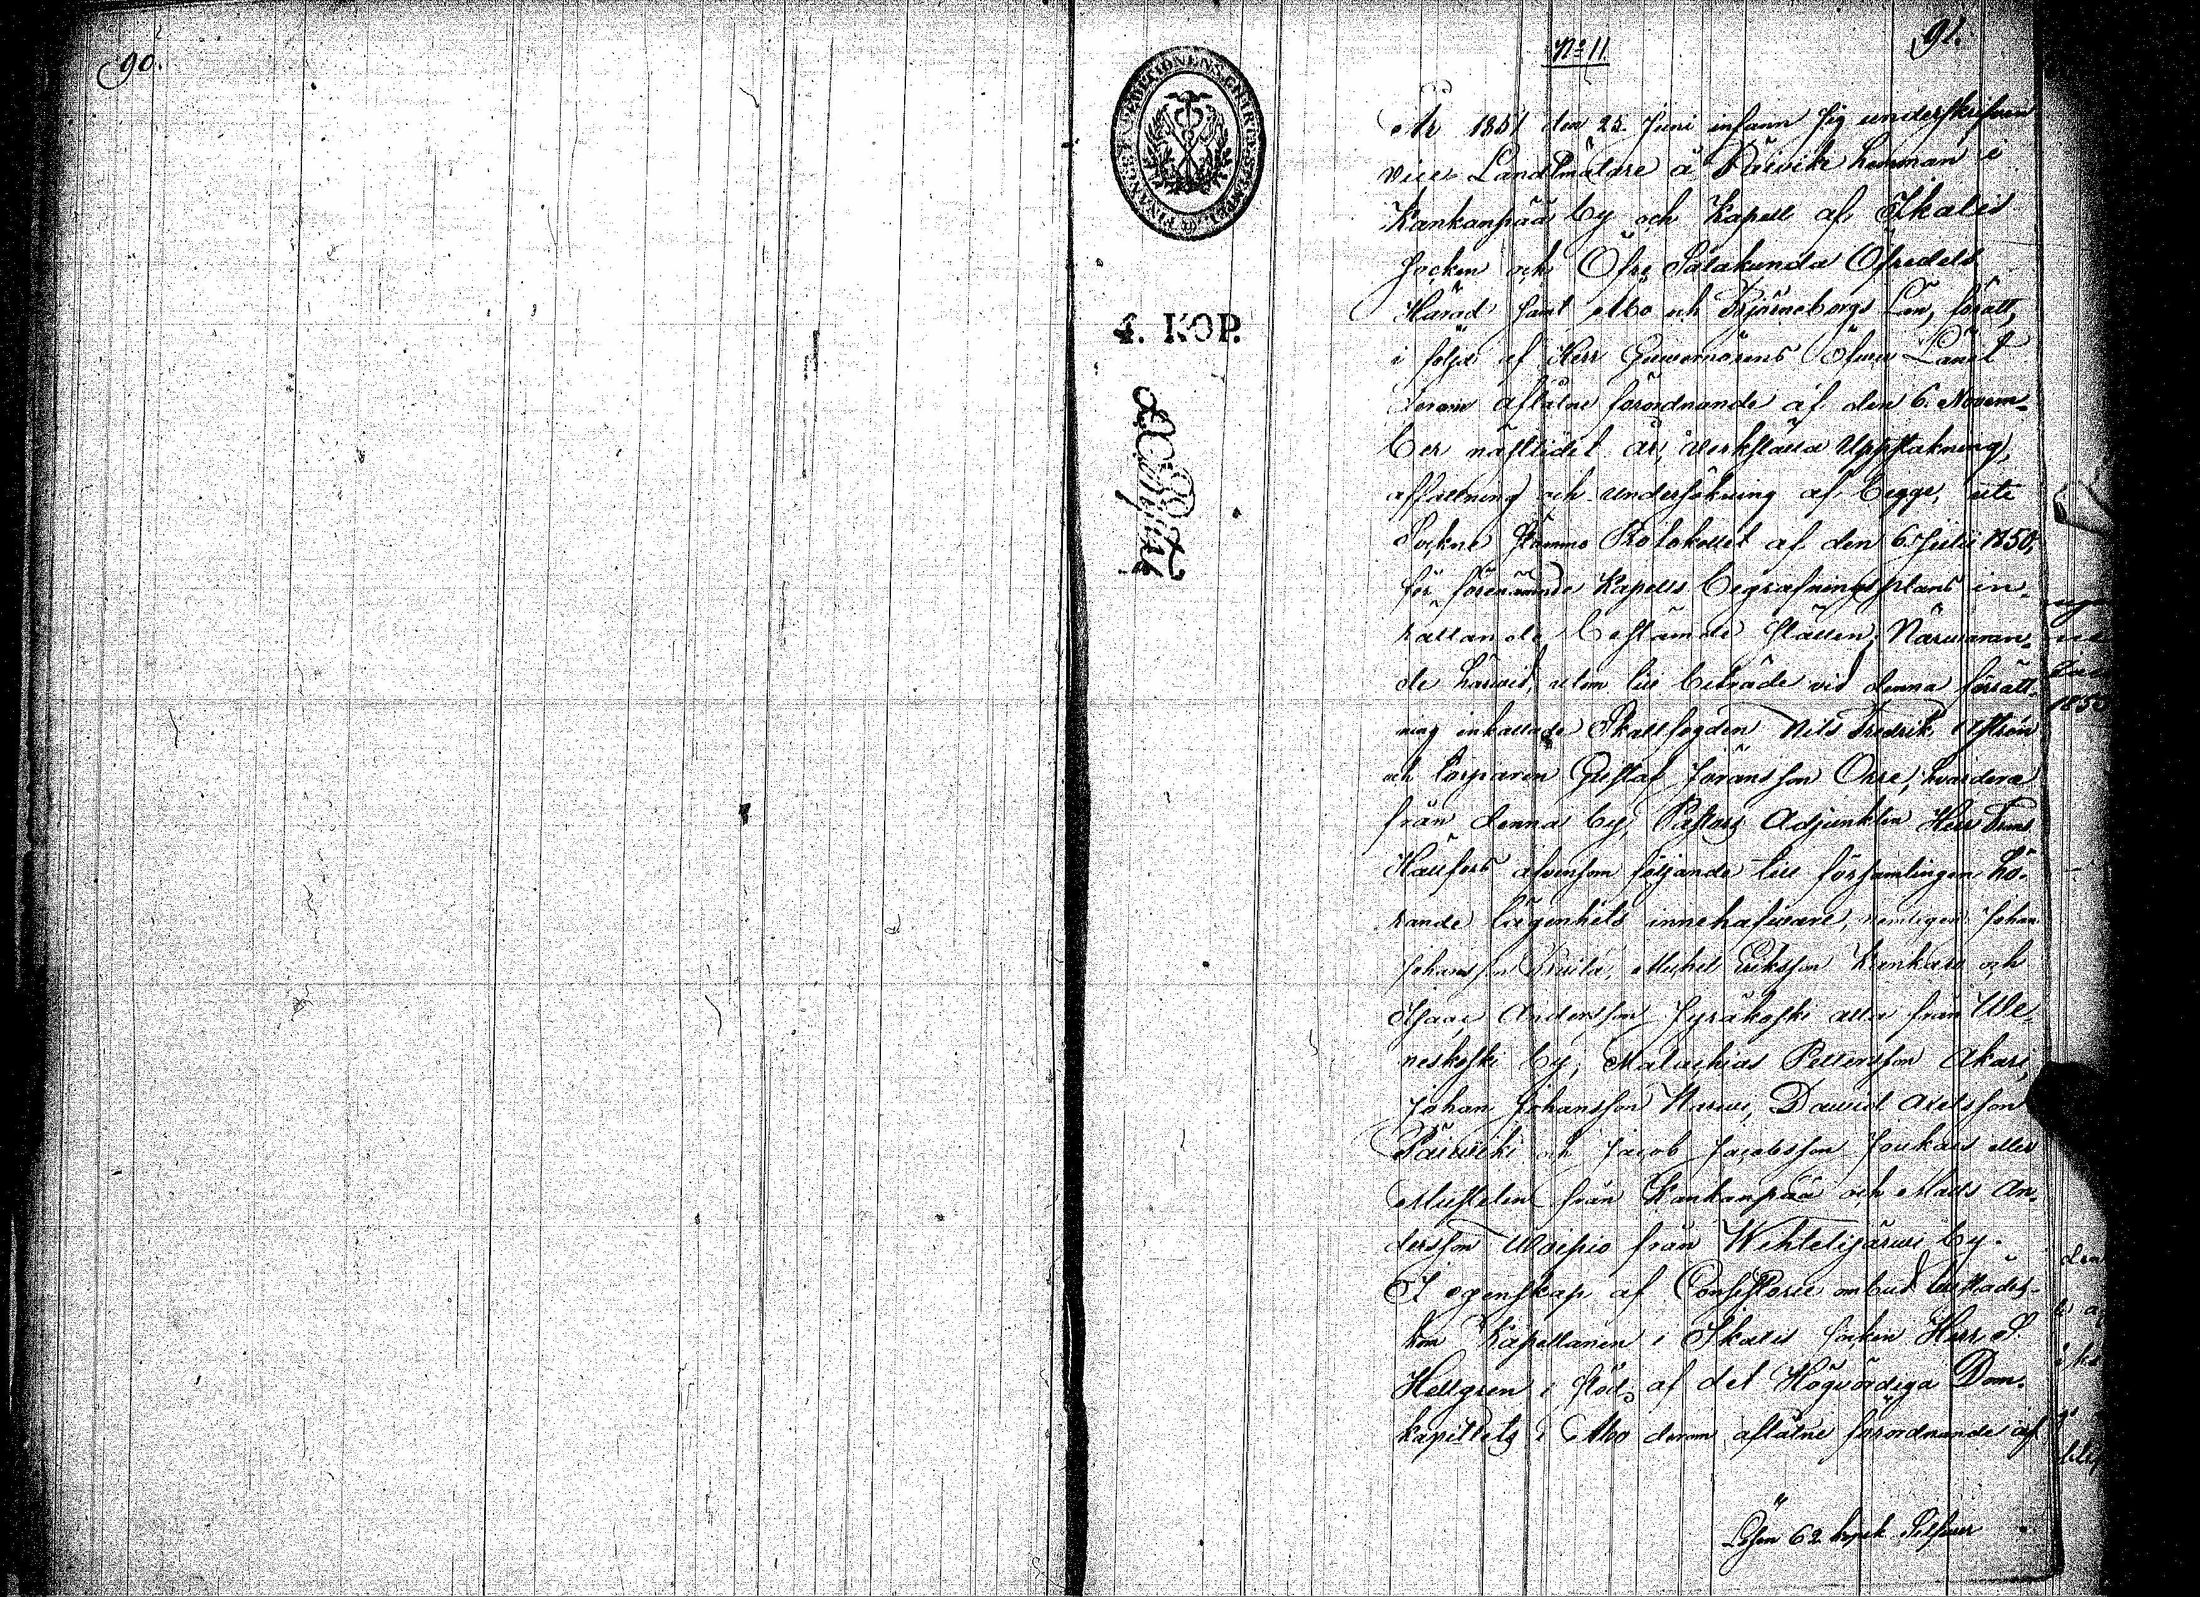 90.
91.
N:o 11
FINANCE EXPEDITIONENS
4. KOP.
År 1851 den 25 Juni infann sig underskrifven
vice Landtmätare å Päivik hemman i
Kankanpää by och Kapell af Ikalis
socken och Öfre Satakunda Öfredels
Härad samt Åbo och Björneborgs Län, för att,
i följd af Herr Guvernörens öfver Länet
derom aflåtne förordnande af den 6. Novem-
ber nästlidet år, verkställa Uppstakning,
affattning och undersökning af begge, uti
Sockne Stämmo Protokollet af den 6. Julii 1850,
för förenämnde Kapells begrafningsplans in-
rättande bestämde ställen; Närvaran-
de härvid, utom till biträde vid denna förrätt-
ning inkallade Skallfogden Nils Fredrik Aström
och torparen Gustaf Göransson Ohre, hvardera
från denna by, Pastors Adjunkten Herr Frans
Hallfors äfvensom följande till församlingen hö-
rande lägenhets innehafvare, nemligen Johan
Johansson, Michel Eriksson Kankare och
Isaac Andersson Jyräkoski alla från We-
neskoski by, Malachias Pettersson Akari,
Johan Johansson Narwi, David Axelsson
Päiviki och Jacob Jacobsson Joukais eller
Mustelin från Kankanpää och Matts An-
dersson Uoispio från Wihtelijärvi by.
I egenskap af Consistorii ombud tillstädes-
kom Kapellanen i Ikalis socken Herr S.
Hellgren i stöd af det Högvördiga Dom-
kapitlets i Åbo derom aflåtne förordnande af
Lösen 62 kopek Silfver